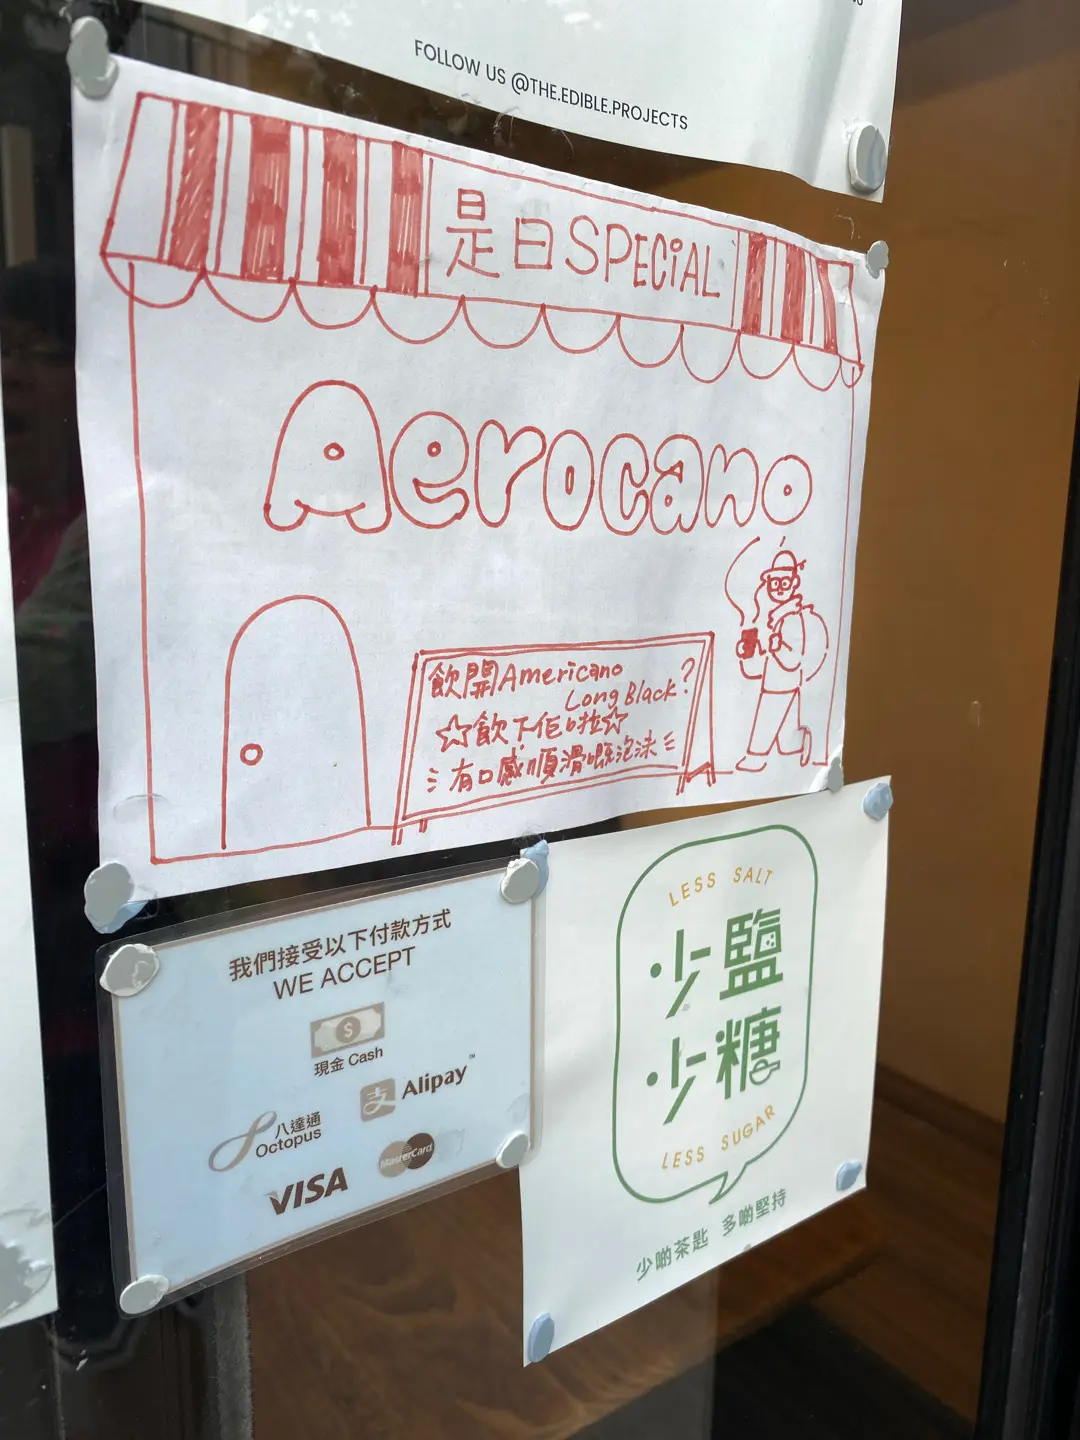 FOLLOW US @THE.EDIBLE.PROJECTS
是日SPECiAL
Aerocano
飲開Americano
Long Black?
☆飲下佢啦☆
有口感順滑嘅泡沫
我們接受以下付款方式
WE ACCEPT
現金 Cash
Alipay™
八達通
Octopus
MasterCard
VISA
LESS SALT
少鹽
少糖
LESS SUGAR
少啲茶匙 多啲堅持